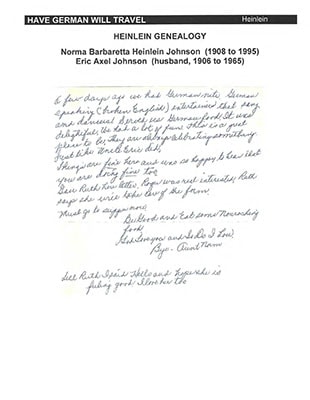 HAVE GERMAN WILL TRAVEL Heinlein
HEINLEIN GENEALOGY
Norma Barbaretta Heinlein Johnson (1908 to 1995)
Eric Axel Johnson (husband, 1906 to 1965)
A few days ago we had German nite, German
speaking (broken English) entertainers that sang
and danced. Served us German food. It was
delightful. We had a lot of fun. This is a great
place to be. They are always celebrating something
Just like Uncle Eric did.
Things are fine here and was so happy to hear that
you are doing fine too.
Ruth letter. Roger was not interested. Ruth
says she will take care of the farm.
Must go to supper now.
Be Good and Eat some Nourishing
food
God Loves you and So Do I Love,
Bye - Aunt Norm
Tell Ruth I said Hello and hope she is
feeling good I love her too